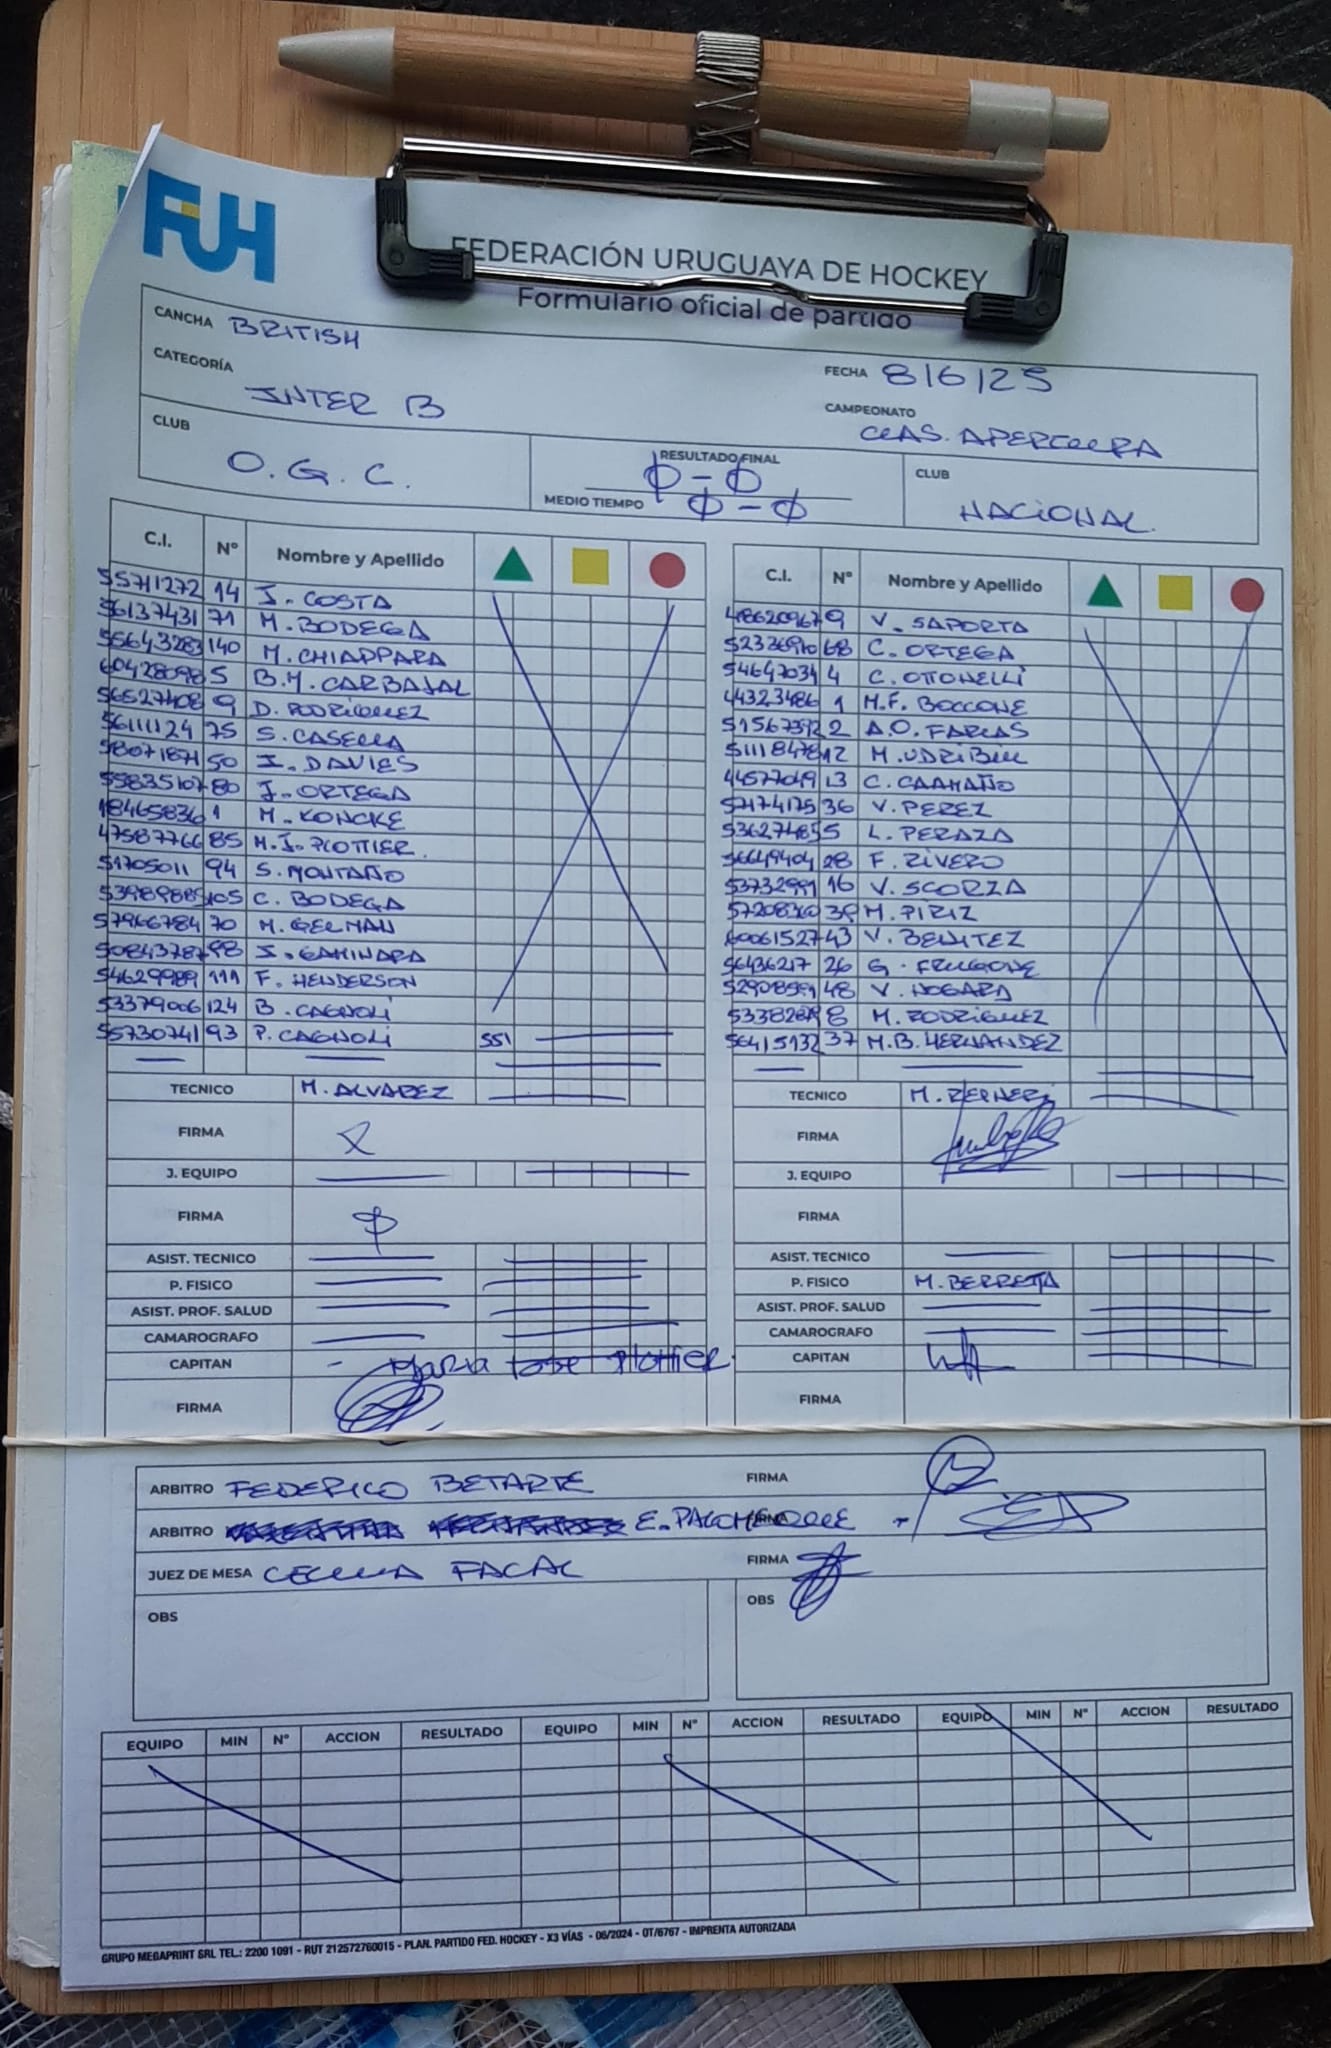 FUH
FEDERACIÓN URUGUAYA DE HOCKEY
Formulario oficial de partido
CANCHA BRITISH
FECHA 8/6/25
CATEGORÍA INTER B
CAMPEONATO CLAS. APERTURA
CLUB O.G.C.
RESULTADO FINAL 0-0
MEDIO TIEMPO 0-0
CLUB NACIONAL.
C.I. Nº Nombre y Apellido
55711272 14 J. COSTA
56137431 71 M. BODEGA
55643283 140 M. CHIAPPARA
60428098 5 B.M. CARBAJAL
56527408 9 D. RODRIGUEZ
56111124 75 S. CASELLA
58071871 50 I. DAVIES
55835107 80 J. ORTEGA
18465836 1 M. KONCKE
47587766 85 M.J. PLOTTIER.
51705011 94 S. MONTAÑO
53989885 105 C. BODEGA
57966784 70 M. GELMAN
50843787 98 J. GAMINARA
54629989 111 F. HENDERSON
53379006 124 B. CAGNOLI
55730741 93 P. CAGNOLI SS\
TECNICO M. ALVAREZ
FIRMA
J. EQUIPO
FIRMA
ASIST. TECNICO
P. FISICO
ASIST. PROF. SALUD
CAMAROGRAFO
CAPITAN - Maria Jose Plottier.
FIRMA
C.I. Nº Nombre y Apellido
48620967 9 V. SAPORTA
52336910 68 C. ORTEGA
54647034 4 C. OTTONELLI
44323486 1 M.F. BOCCONE
51567392 2 A.O. FARIAS
51118478 12 M. UDRIBILL
44577049 13 C. CAAMAÑO
57174175 36 V. PEREZ
53627485 5 L. PERAZA
56649404 28 F. RIVERO
53732991 16 V. SCORZA
57208360 39 M. PIRIZ
60061527 43 V. BENITEZ
56436217 26 G. FRUGONE
52908591 48 V. NOGARA
8 M. RODRIGUEZ
56415132 37 M.B. HERNANDEZ
TECNICO M.
FIRMA
J. EQUIPO
FIRMA
ASIST. TECNICO
P. FISICO M. BERRETTA
ASIST. PROF. SALUD
CAMAROGRAFO
CAPITAN
FIRMA
ARBITRO FEDERICO BETARTE FIRMA
ARBITRO E. PALCHEQUE FIRMA
JUEZ DE MESA CECILIA FACAL FIRMA
OBS
OBS
EQUIPO MIN Nº ACCION RESULTADO EQUIPO MIN Nº ACCION RESULTADO EQUIPO MIN Nº ACCION RESULTADO
GRUPO MEGAPRINT SRL TEL.: 2200 1091 - RUT 212572760015 - PLAN. PARTIDO FED. HOCKEY - X3 VÍAS - 06/2024 - OT/6767 - IMPRENTA AUTORIZADA